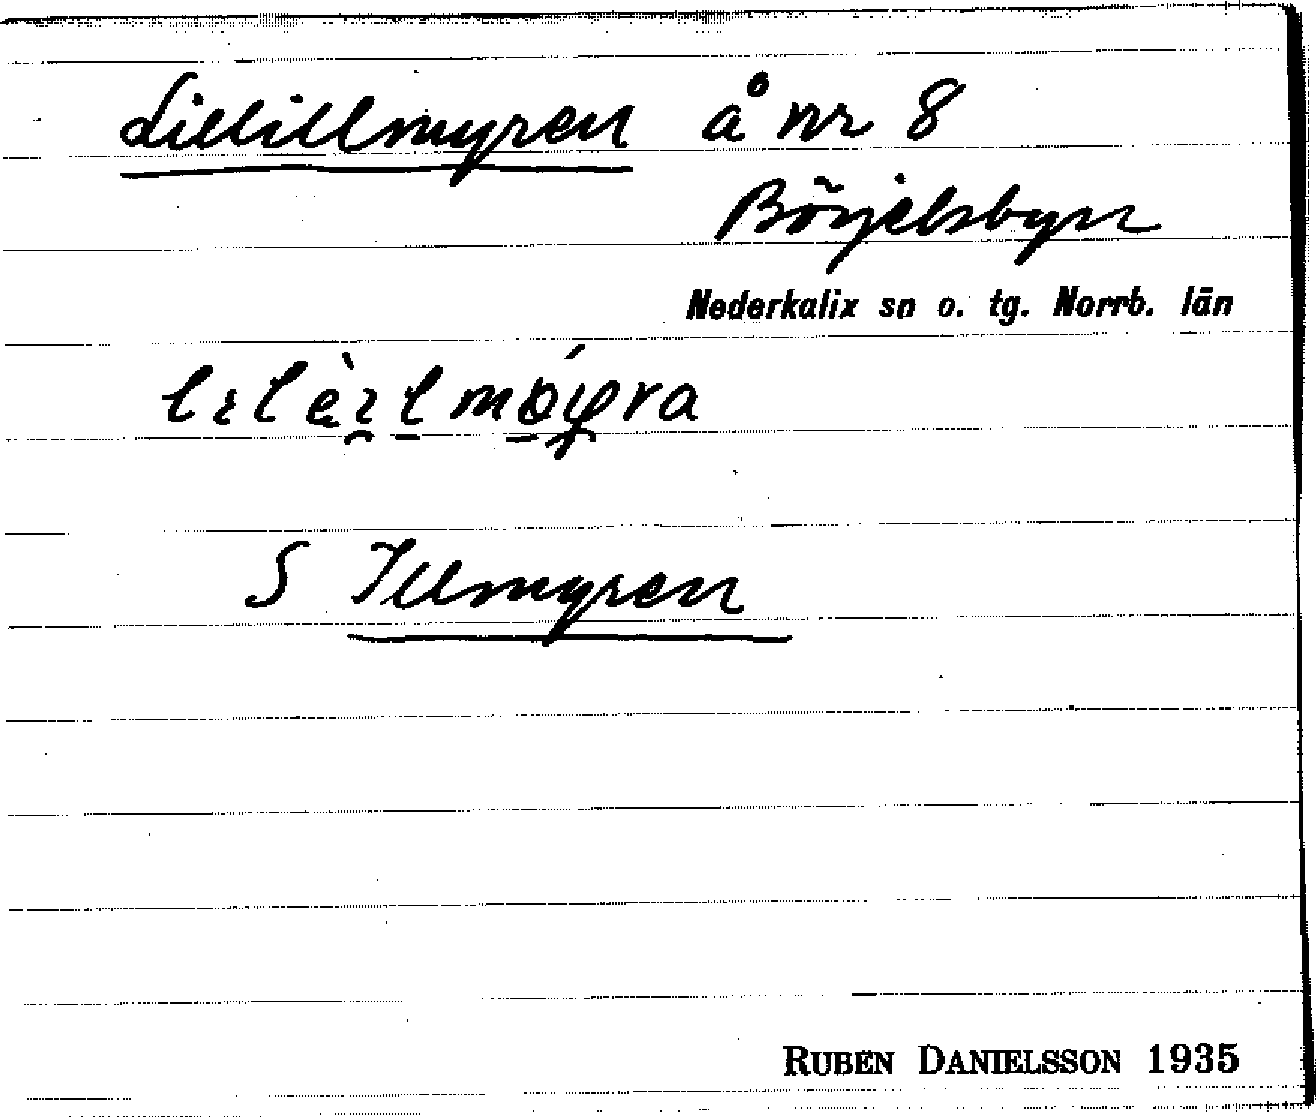 Lillillmyren å nr 8
Börjelsbyn
Nederkalix sn o. tg. Norrb. län
S Illmyren
RUBEN DANIELSSON 1935